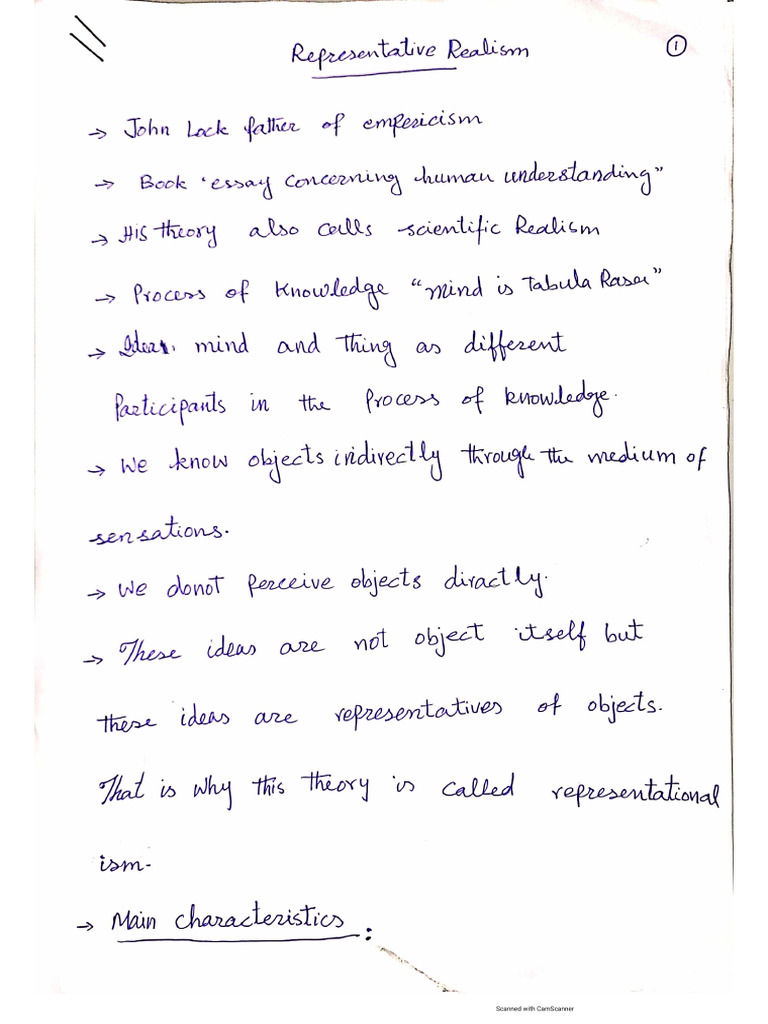 Representative Realism
①
→ John Lock father of empericism
→ Book 'essay concerning human understanding"
→ His theory also calls scientific Realism
→ Process of knowledge "mind is Tabula Rasa"
→ Ideas, mind and thing as different
Participants in the Process of knowledge.
→ We know objects indirectly through the medium of
sensations.
→ We donot perceive objects diractly.
→ These ideas are not object itself but
these ideas are representatives of objects.
That is why this theory is called representational
ism-
→ Main characteristics :
Scanned with CamScanner